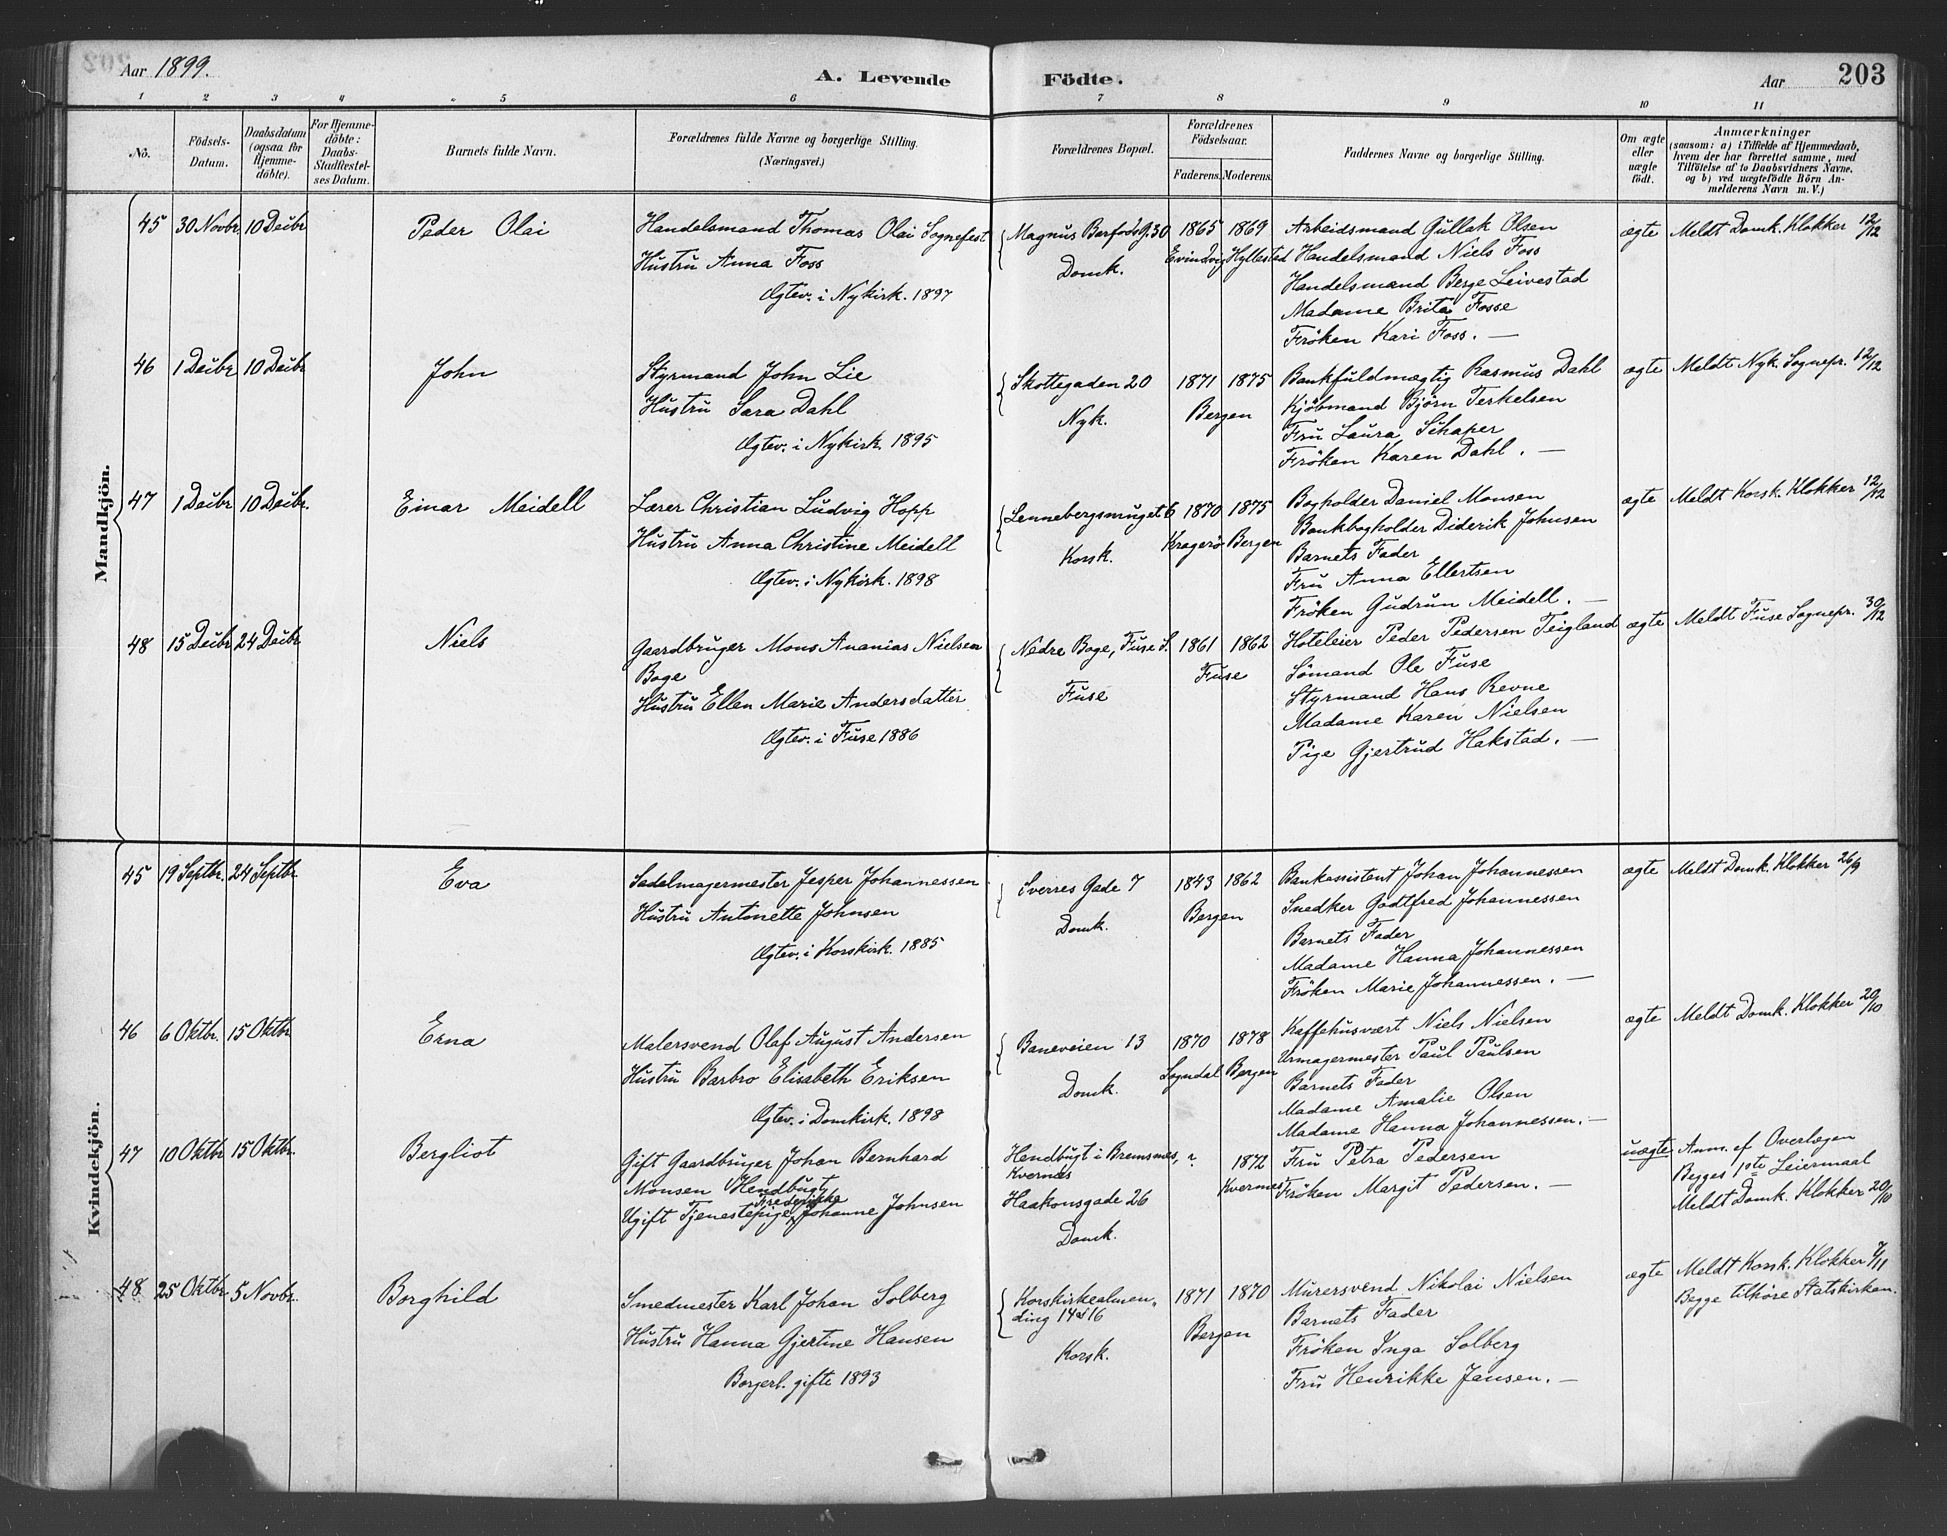 Aar 1899.
A. Levende Födte.
Aar
203
1 2 3 4 5 6 7 8 9 10 11
No.
Födsels-Datum.
Daabsdatum (ogsaa for Hjemme-döbte).
For Hjemme-döbte: Daabs-Stadfæstel-ses Datum.
Barnets fulde Navn.
Forældrenes fulde Navne og borgerlige Stilling.
(Næringsvei.)
Forældrenes Bopæl.
Forældrenes Födselsaar.
Faderens. Moderens.
Faddernes Navne og borgerlig Stilling.
Om ægte eller uægte födt.
Anmærkninger
(saasom: a) i Tilfælde af Hjemmedaab, hvem der har forrettet samme, med Tilföielse af to Daabsvidners Navne, og b) ved uægtefödte Börn An-melderens Navn m. V.)
Mandkjön.
45 30 Novbr. 10 Decbr
Peder Olai
Handelsmand Thomas Olai Sognefest
Hustru Anna Foss
Ægtev. i Nykirk. 1897
Magnus Barfods G. 30
Domk.
1865 1869
Evindvig Hyllestad
Arbeidsmand Gullak Olsen
Handelsmand Niels Foss
Handelsmand Berge Leivestad
Madame Brita Fosse
Fröken Kari Foss. —
ægte
Meldt Domk. Klokker 12/12
46 1 Decbr 10 Decbr
John
Styrmand John Lie
Hustru Sara Dahl
Ægtev. i Nykirk. 1895
Skottegaden 20
Nyk.
1871 1875
Bergen
Bankfuldmægtig Rasmus Dahl
Kjöbmand Björn Terkelsen
Fru Laura Schaper
Fröken Karen Dahl. —
ægte
Meldt Nyk. Sognepr. 12/12
47 1 Decbr 10 Decbr.
Einar Meidell
Lærer Christian Ludvig Hopp
Hustru Anna Christine Meidell
Ægtev. i Nykirk. 1898
Lennebergsmuget 6
Korsk.
1870 1875
Kragerö Bergen
Bogholder Daniel Monsen
Bankbogholder Diderik Johnsen
Barnets Fader
Fru Anna Ellertsen
Fröken Gudrun Meidell. —
ægte
Meldt Korsk. Klokker 12/12
48 15 Decbr 24 Decbr
Niels
Gaardbruger Mons Ananias Nielsen
Boge
Hustru Ellen Marie Andersdatter
Ægtev. i Fuse 1886
Nedre Boge, Fuse S.
Fuse
1861 1862
Fuse
Hoteleier Peder Pedersen Teigland
Sömand Ole Fuse
Styrmand Hans Revne
Madame Karen Nielsen
Pige Gjertrud Hakstad. —
ægte
Meldt Fuse Sognepr. 30/12
Kvindekjön.
45 19 Septbr. 24 Septbr
Eva
Sadelmagermester Jesper Johannessen
Hustru Antonette Johnsen
Ægtev. i Korskirk. 1885
Sverres Gade 7
Domk.
1843 1862
Bergen
Bankassistent Johan Johannessen
Snedker Godtfred Johannessen
Barnets Fader
Madame Hanna Johannessen
Fröken Marie Johannessen. —
ægte
Meldt Domk. Klokker 26/9
46 6 Oktbr. 15 Oktbr
Erna
Malersvend Olaf August Andersen
Hustru Barbro Elisabeth Eriksen
Ægtev. i Domkirk. 1898
Baneveien 13
Domk.
1870 1878
Sogndal Bergen
Kaffehusvært Niels Nielsen
Urmagermester Paul Paulsen
Barnets Fader
Madame Amalie Olsen
Madame Hanna Johannessen. —
ægte
Meldt Domk. Klokker 20/10
47 10 Oktbr 15 Oktbr.
Bergliot
Gift Gaardbruger Johan Bernhard
Monsen Hendbugt
Ugift Tjenestepige Frederikke Johanne Johnsen
Hendbugt i Bremsnes,
Kvernes
Haakonsgade 26
Domk.
? 1872
Kvernes
Fru Petra Pedersen
Fröken Margit Pedersen. —
uægte
Anm. af Overlægen
Begges 1ste Leiermaal
Meldt Domk. Klokker 20/10
48 25 Oktbr 5 Novbr.
Borghild
Smedmester Karl Johan Solberg
Hustru Hanna Gjertine Hansen
Borgerl. gifte 1893
Korskirkealmen-
ding 14 & 16
Korsk.
1871 1870
Bergen
Murersvend Nikolai Nielsen
Barnets Fader
Fröken Inga Solberg
Fru Henrikke Jansen. —
ægte
Meldt Korsk. Klokker 7/11
Begge tilhöre Statskirken.